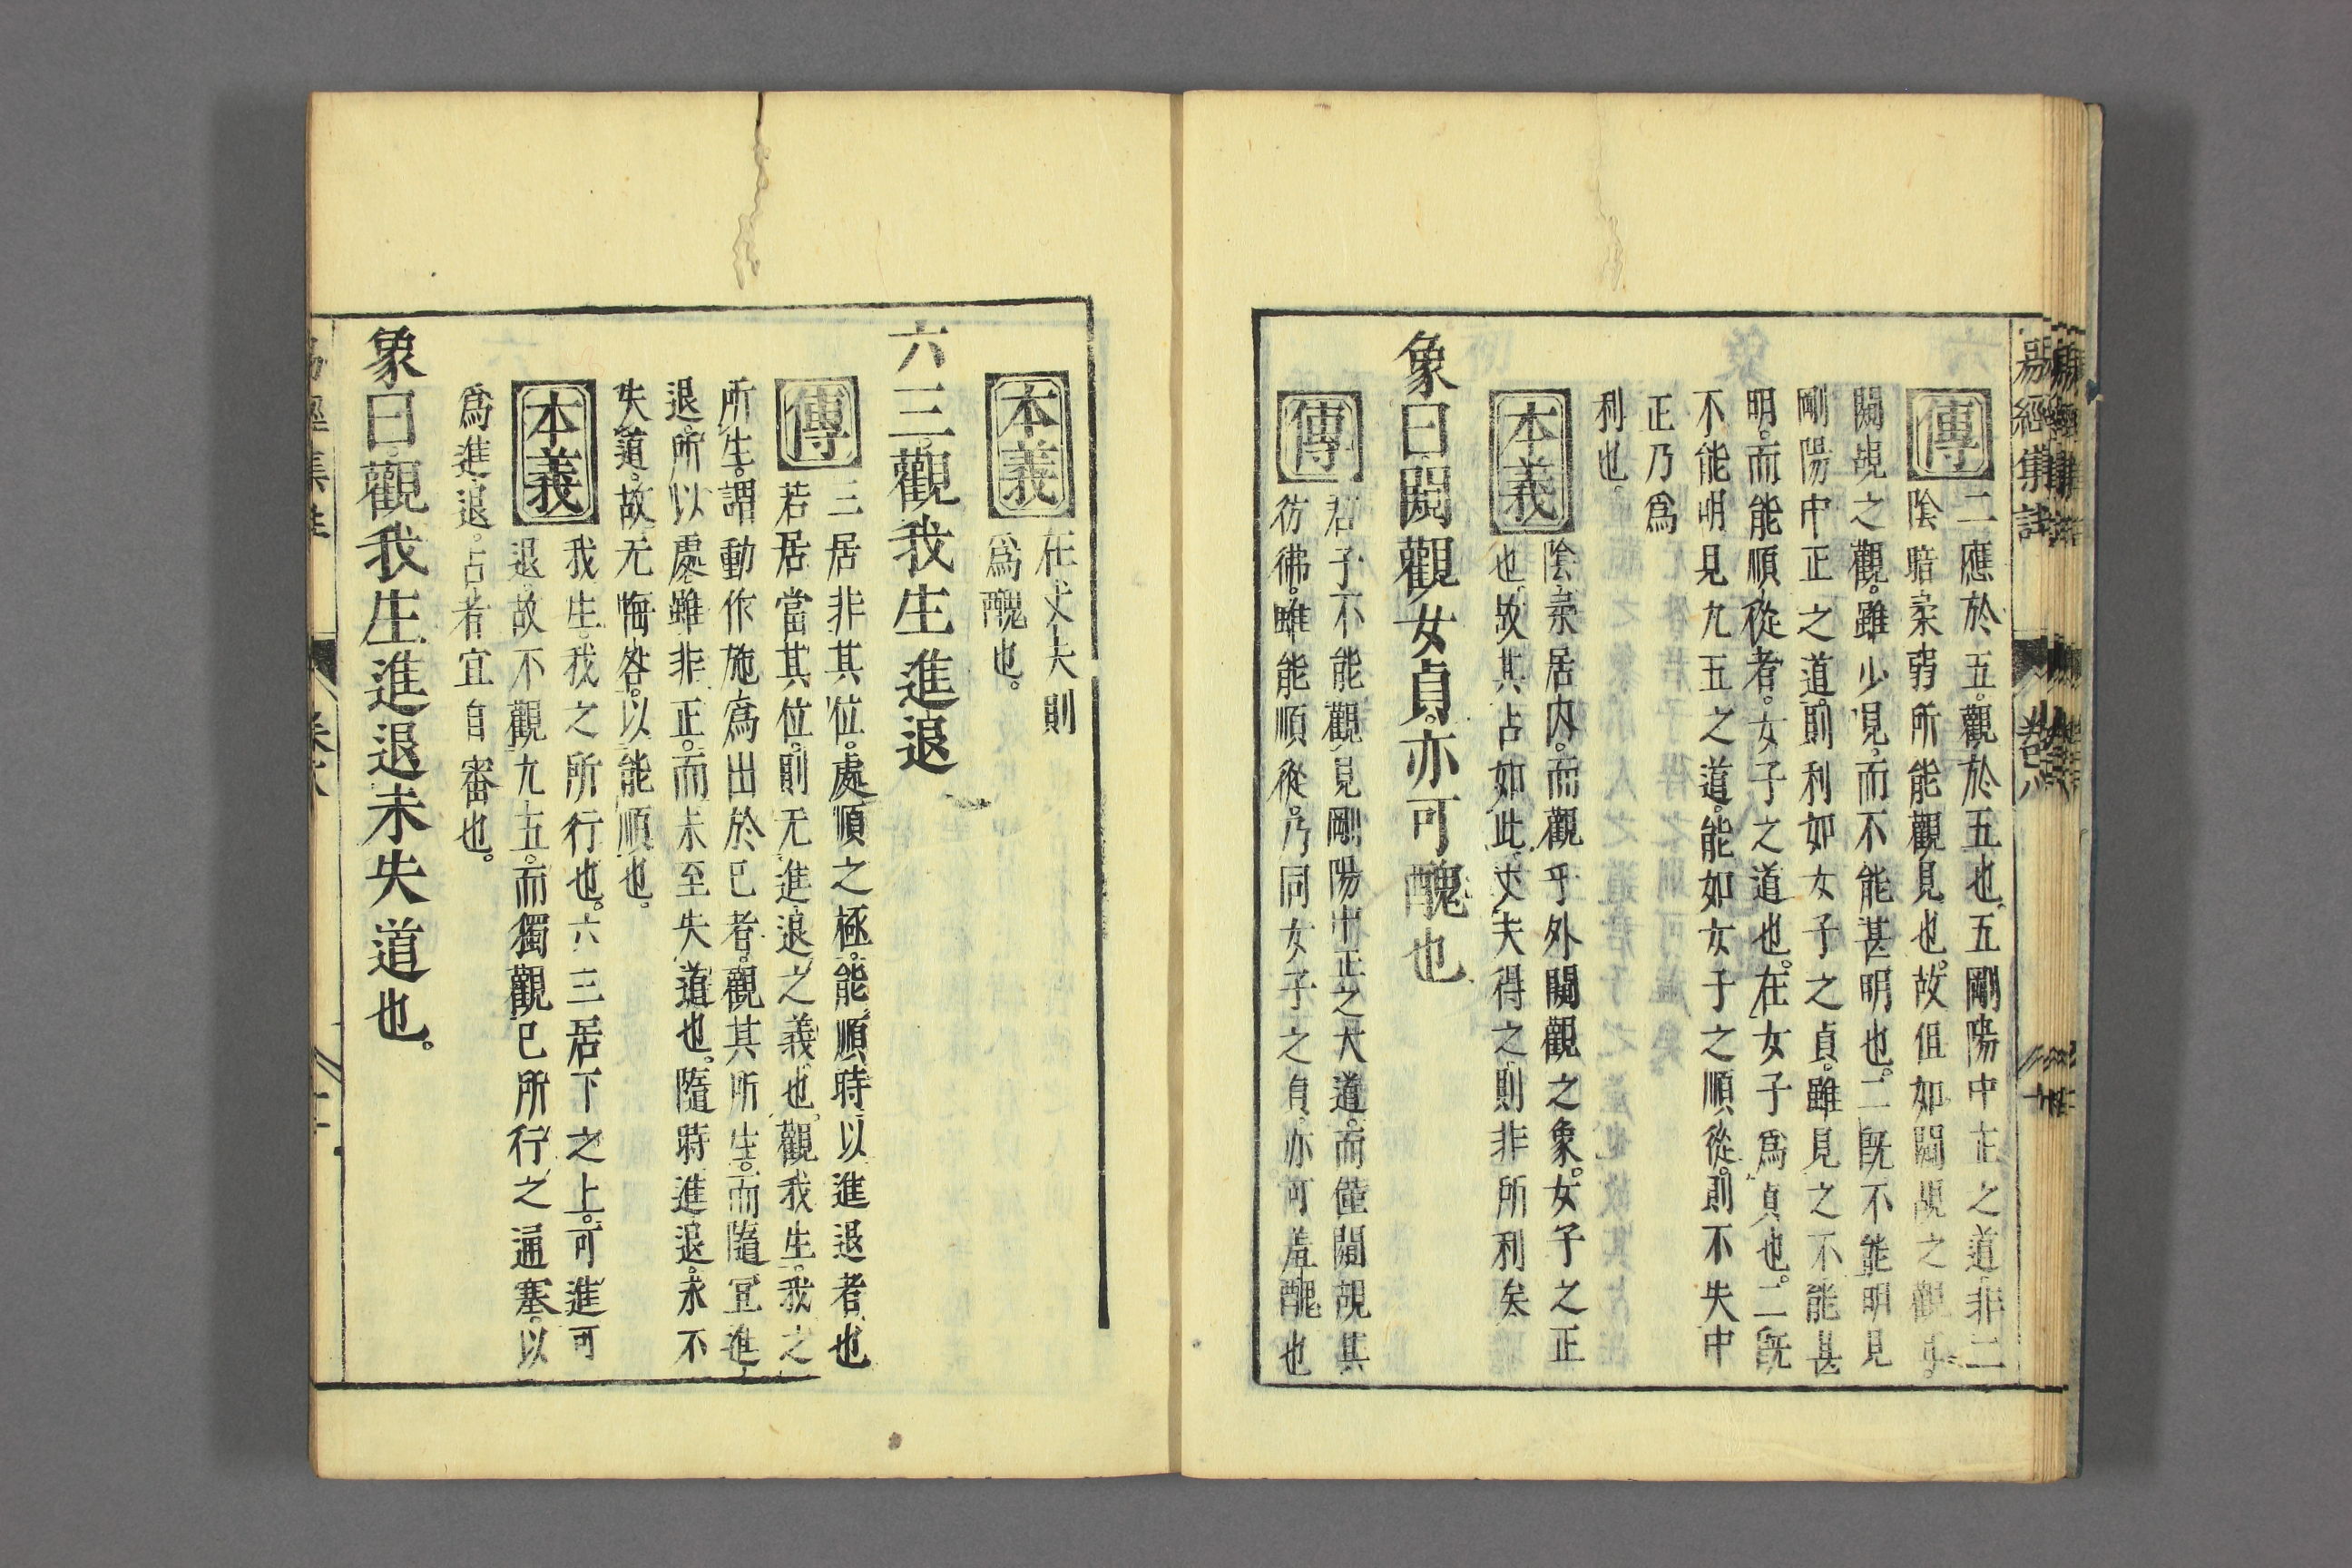 易經集註
卷六
十五
傳
二應於五。觀於五也。五剛陽中正之道非二
陰暗柔弱所能觀見也。故但如闚覘之觀耳。
闚覘之觀。雖少見。而不能甚明也。二旣不能明見
剛陽中正之道。則利如女子之貞。雖見之不能甚
明。而能順從者。女子之道也。在女子爲貞也。二旣
不能明見九五之道。能如女子之順從。則不失中
正乃爲
利也。
本義
陰柔居内。而觀乎外闚觀之象。女子之正
也。故其占如此。丈夫得之。則非所利矣
象曰闚觀女貞。亦可醜也
傳
君子不能觀見剛陽中正之大道。而僅闚覘其
彷彿。雖能順從。乃同女子之貞。亦可羞醜也
本義
在丈夫則
爲醜也。
六三。觀我生進退
傳
三居非其位。處順之極。能順時以進退者也
若居當其位。則无進退之義也。觀我生。我之
所生。謂動作施爲出於已者。觀其所生。而隨宜進
退。所以處雖非正。而未至失道也。隨時進退。求不
失道。故无悔咎。以能順也。
本義
我生。我之所行也。六三居下之上。可進可
退。故不觀九五。而獨觀已所行之通塞。以
爲進退。占者宜自審也。
象曰。觀我生進退未失道也。